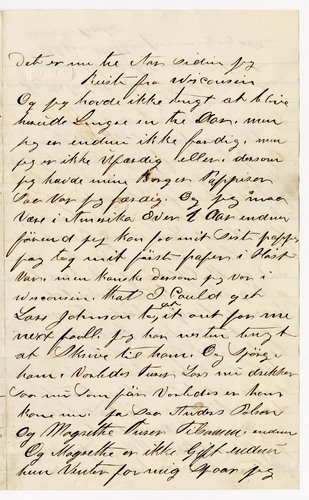 Det er nu tre Aar siden jeg
Reiste fra Wisconsin
Og jeg havde ikke tengt at blive
herude Lengre en tre Aar, men
jeg er endnu ikke færdig, men
jeg er ikke Ufærdig eller, dersom
jeg havde mine Borger Pappirer
Saa var jeg færdig. Og jeg maa
Være i Amerika Over 1 Aar endnu
førend jeg kan faa mit Sist papper
jeg tog mit først papers i Høst
Var, men kanske dersom jeg var i
Wisconsin, that I Could get
Lars Johnson to git it out for me
next faall, jeg har nesten tengt
at Skrive til ham, Og Spørge
ham. Vorledes Lars nu drikker
Saa nu Som før Vorledes er hans
Kone nu. ja saa Anders Olson
Og Magrethe endnu
Og Magrethe er ikke Gift endnu
hun Venter for mig jeg